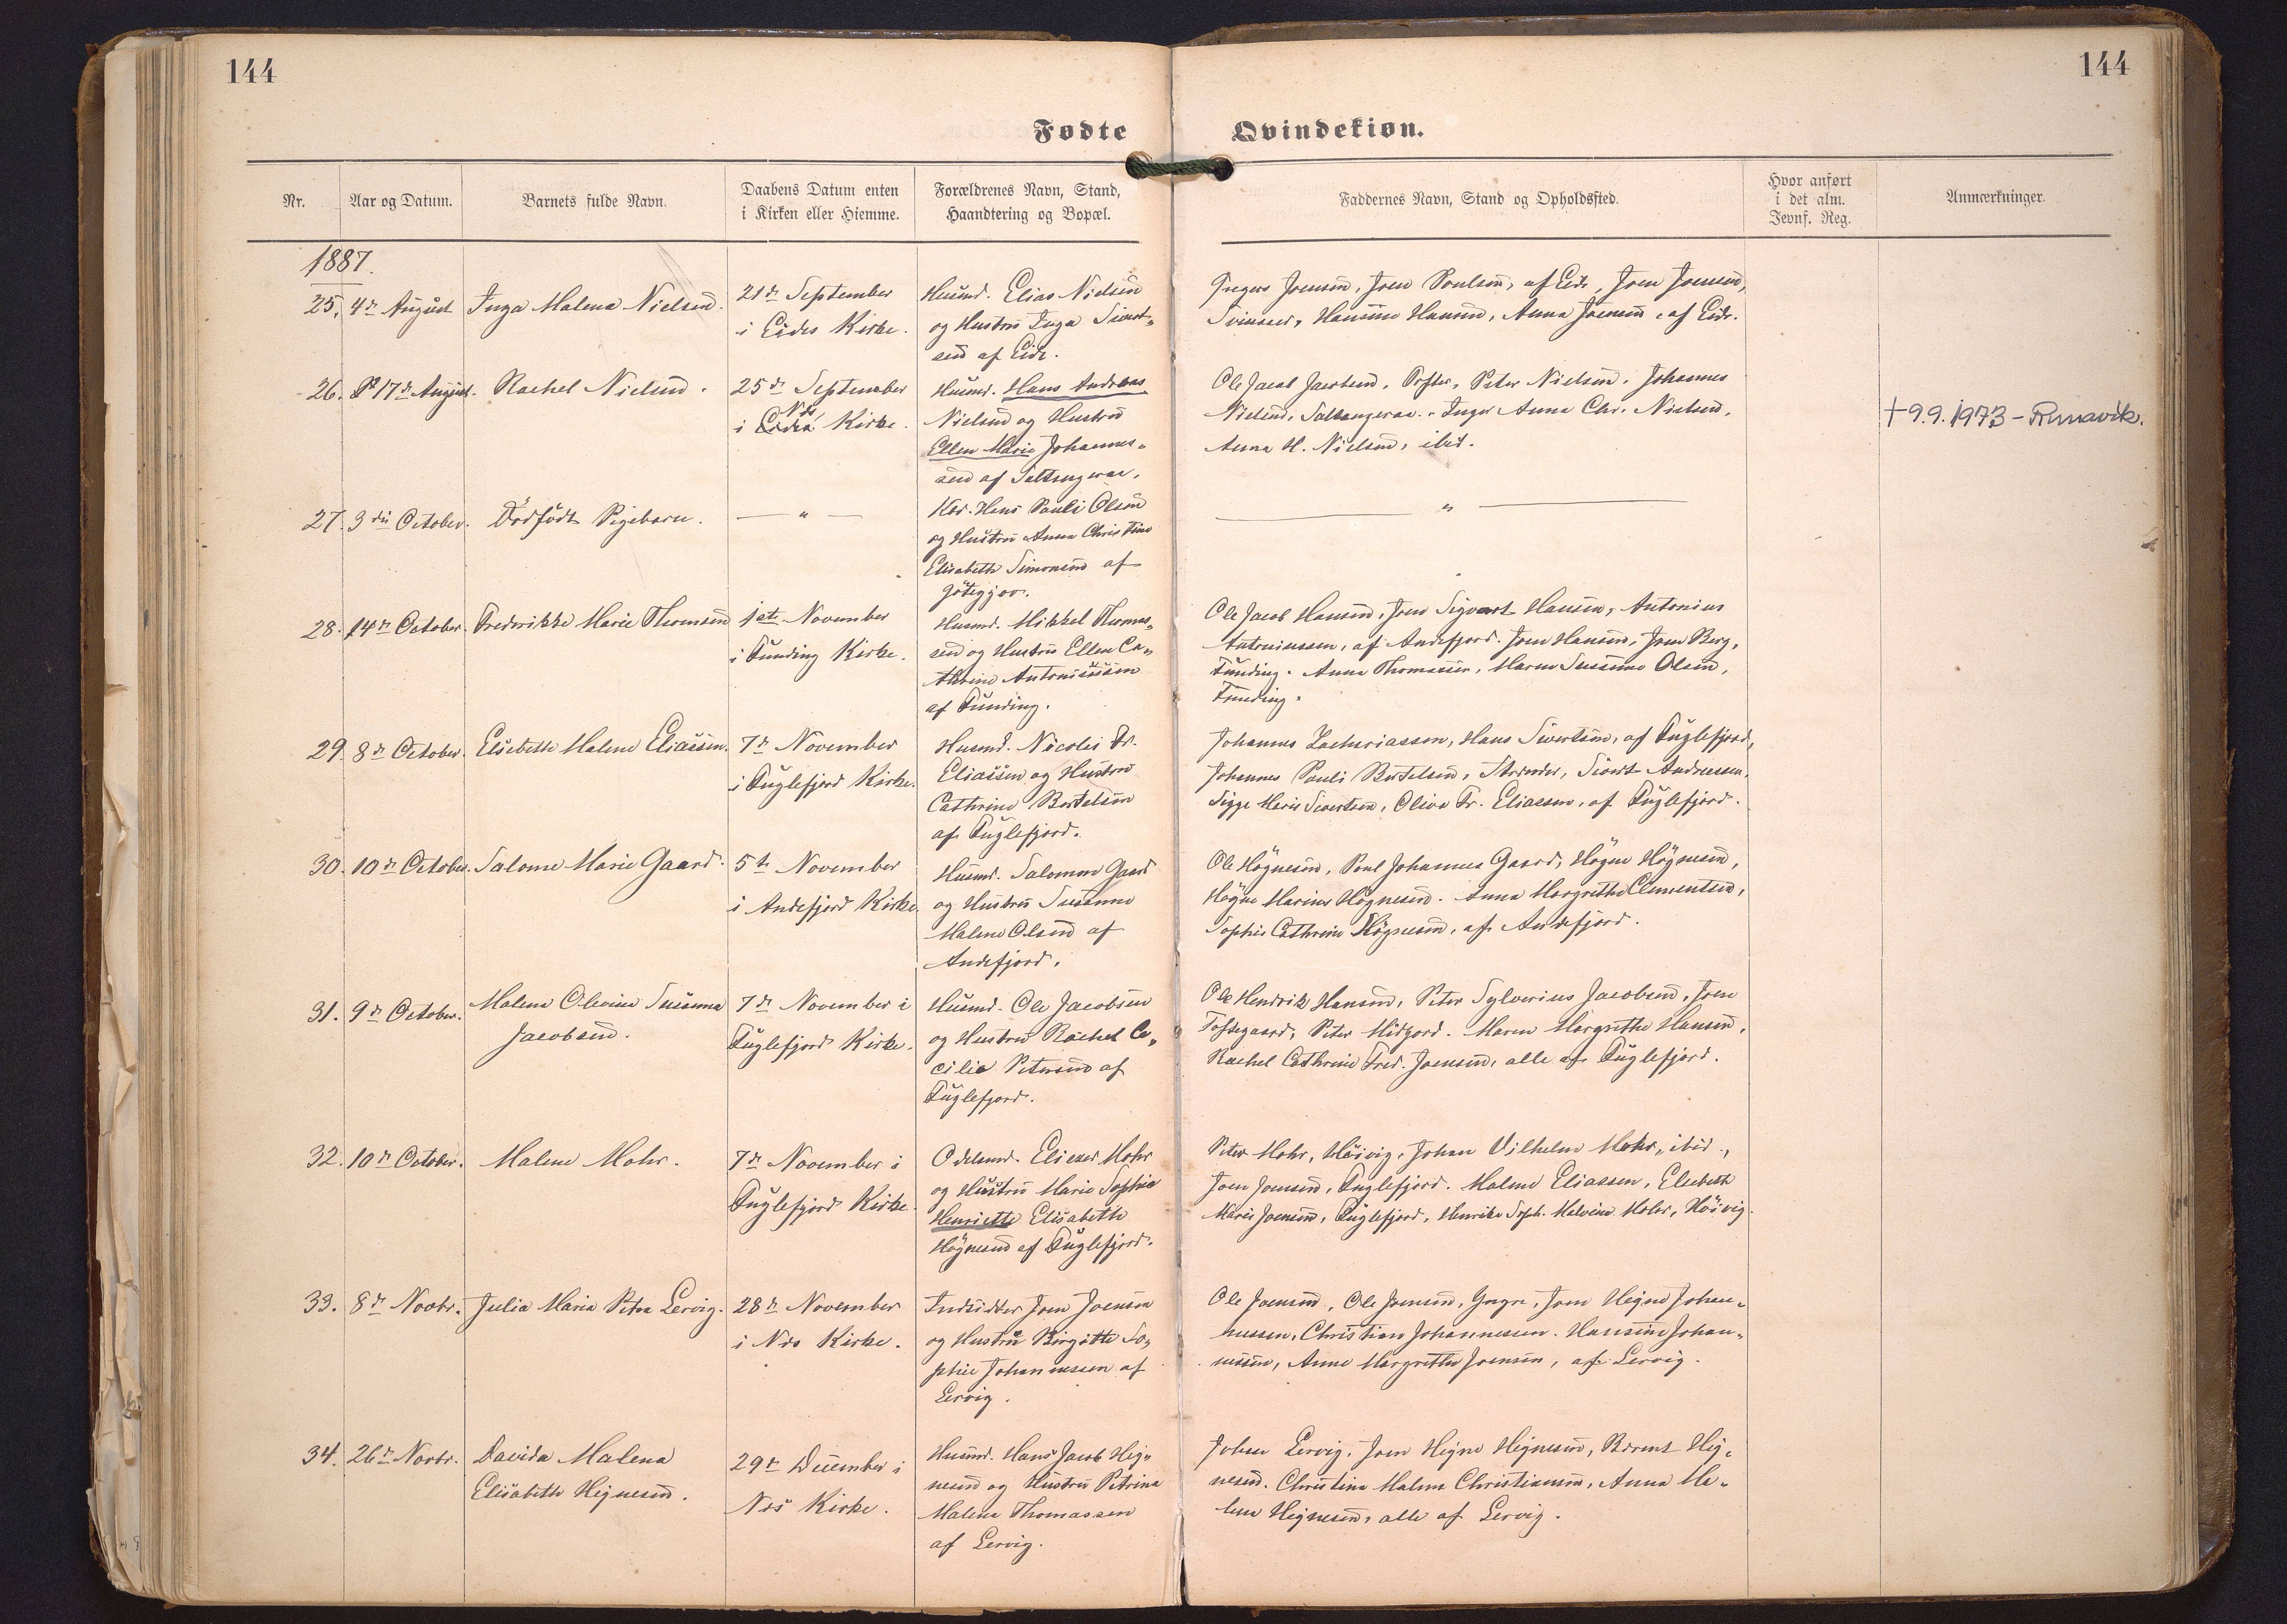 144
144
Fødte
Qvindekiøn.
Nr.
Aar og Datum.
Barnets fulde Navn.
Daabens Datum enten
i Kirken eller Hiemme.
Forældrenes Navn, Stand,
Haandtering og Bopæl.
Faddernes Navn, Stand og Opholdssted.
Hvor anført
i det alm.
Jevnf. Reg.
Anmærkninger.
1887.
25. 4de August
Inga Malena Nielsen.
21de September
i Eides Kirke.
Husmd. Elias Nielsen
og Hustru Inga Sivert-
sen af Eide.
Joensen, Joen Poulsen, af Eide, Joen Joensen,
Hansine Hansen, Anna Joensen, af Eide.
26. 17de August.
Rachel Nielsen.
25de September
i Nes Kirke.
Husmd. Hans Andreas
Nielsen og Hustru
Ellen Marie Johannes-
sen af Saltangeraa.
Ole Jacob Jacobsen, Peter Nielsen, Johannes
Nielsen, Saltangeraa. Inger Anna Chr. Nielsen,
Anna H. Nielsen, ibid.
†9.9.1973-Runavík.
27. 3die October.
Dødfødt Pigebarn.
— " —
Hans Pauli Olsen
og Hustru Anna Christine
Elisabeth Simonsen af
Gøtegjov.
— " —
28. 14de October.
Frederikke Marie Thomsen
1ste November
i Funding Kirke.
Husmd. Mikkel Thomas-
sen og Hustru Ellen Ca-
thrine Antoniussen
af Funding.
Ole Jacob Hansen, Joen Sigvart Hansen, Antonius
Antoniussen, af Andefjord. Joen Hansen, Joen Berg,
Funding. Anna Thomassen, Maren Susanne Olsen,
Funding.
29. 8de October.
Elsebeth Malene Eliassen.
7de November
i Fuglefjord Kirke.
Husmd. Nicolai Fr.
Eliassen og Hustru
Cathrine Bertelsen
af Fuglefjord.
Johannes Zachariassen, Hans Sivertsen, af Fuglefjord,
Johannes Pauli Bertelsen, Strender, Sivert Andreassen,
Sigge Marie Sivertsen, Olive Fr. Eliassen, af Fuglefjord.
30. 10de October.
Salome Marie Gaard.
5te November
i Andefjord Kirke
Husmd. Salomon Gaard
og Hustru Susanne
Malene Olsen af
Andefjord.
Ole Høgnesen, Poul Johannes Gaard, Høgne Høgnesen,
Høgne Marius Høgnesen. Anna Margrethe Clementsen,
Sophie Cathrine Høgnesen, af Andefjord.
31. 9de October.
Malene Olevine Susanna
Jacobsen.
7de November i
Fuglefjord Kirke.
Husmd. Ole Jacobsen
og Hustru Rachel Ce-
cilie Petersen af
Fuglefjord.
Ole Hendrik Hansen, Peter Sylverius Jacobsen, Joen
Toftegaard, Peter Midjord. Maren Margrethe Hansen,
Rachel Cathrine Fred. Joensen, alle af Fuglefjord.
32. 10de October.
Malene Mohr.
7de November i
Fuglefjord Kirke.
Odelsmd. Eliezer Mohr
og Hustru Marie Sophie
Henriette Elisabeth
Høgnesen af Fuglefjord.
Peter Mohr, Høivig, Johan Vilhelm Mohr, ibid.,
Joen Joensen, Fuglefjord. Malene Eliassen, Elsebeth
Marie Joensen, Fuglefjord, Henrike Soph. Malvine Mohr, Høivig.
33. 8de Novbr.
Julia Maria Petra Lervig.
28de November
i Nes Kirke.
Indsidder Joen Joensen
og Hustru Birgitte So-
phie Johannessen af
Lervig.
Ole Joensen, Ole Joensen, Yngre, Joen Hegne Johan-
nessen, Christian Johannessen. Hansine Johan-
nessen, Anne Margrethe Joensen, af Lervig.
34. 26de Novbr.
Davida Malena
Elisabeth Hegnesen.
29de December i
Nes Kirke.
Husmd. Hans Jacob Heg-
nesen og Hustru Petrina
Malena Thomassen
af Lervig.
Johan Lervig, Joen Hegne Hegnesen, Berent Heg-
nesen. Christina Malene Christiansen, Anna Ma-
lene Hegnesen, alle af Lervig.